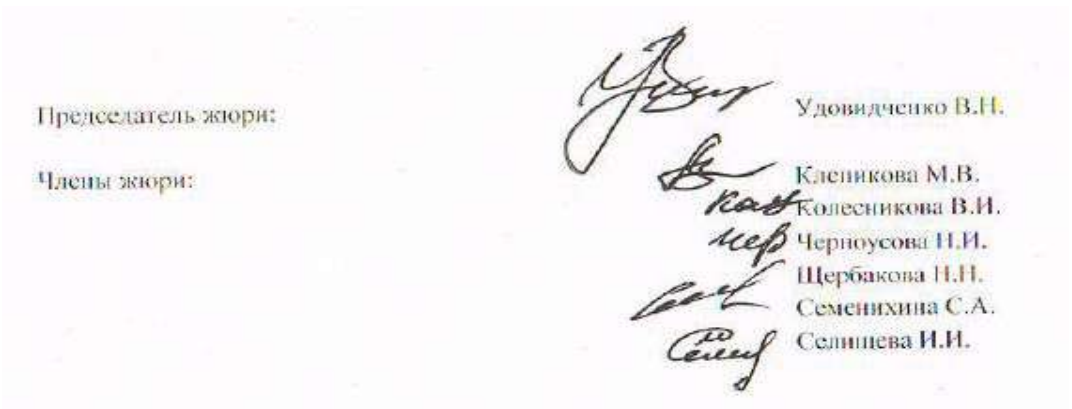 Председатель жюри:
Удовидченко В.Н.
Члены жюри:
Кленикова М.В.
Колесникова В.И.
Черноусова Н.И.
Щербакова Н.Н.
Семенихина С.А.
Селищева И.И.